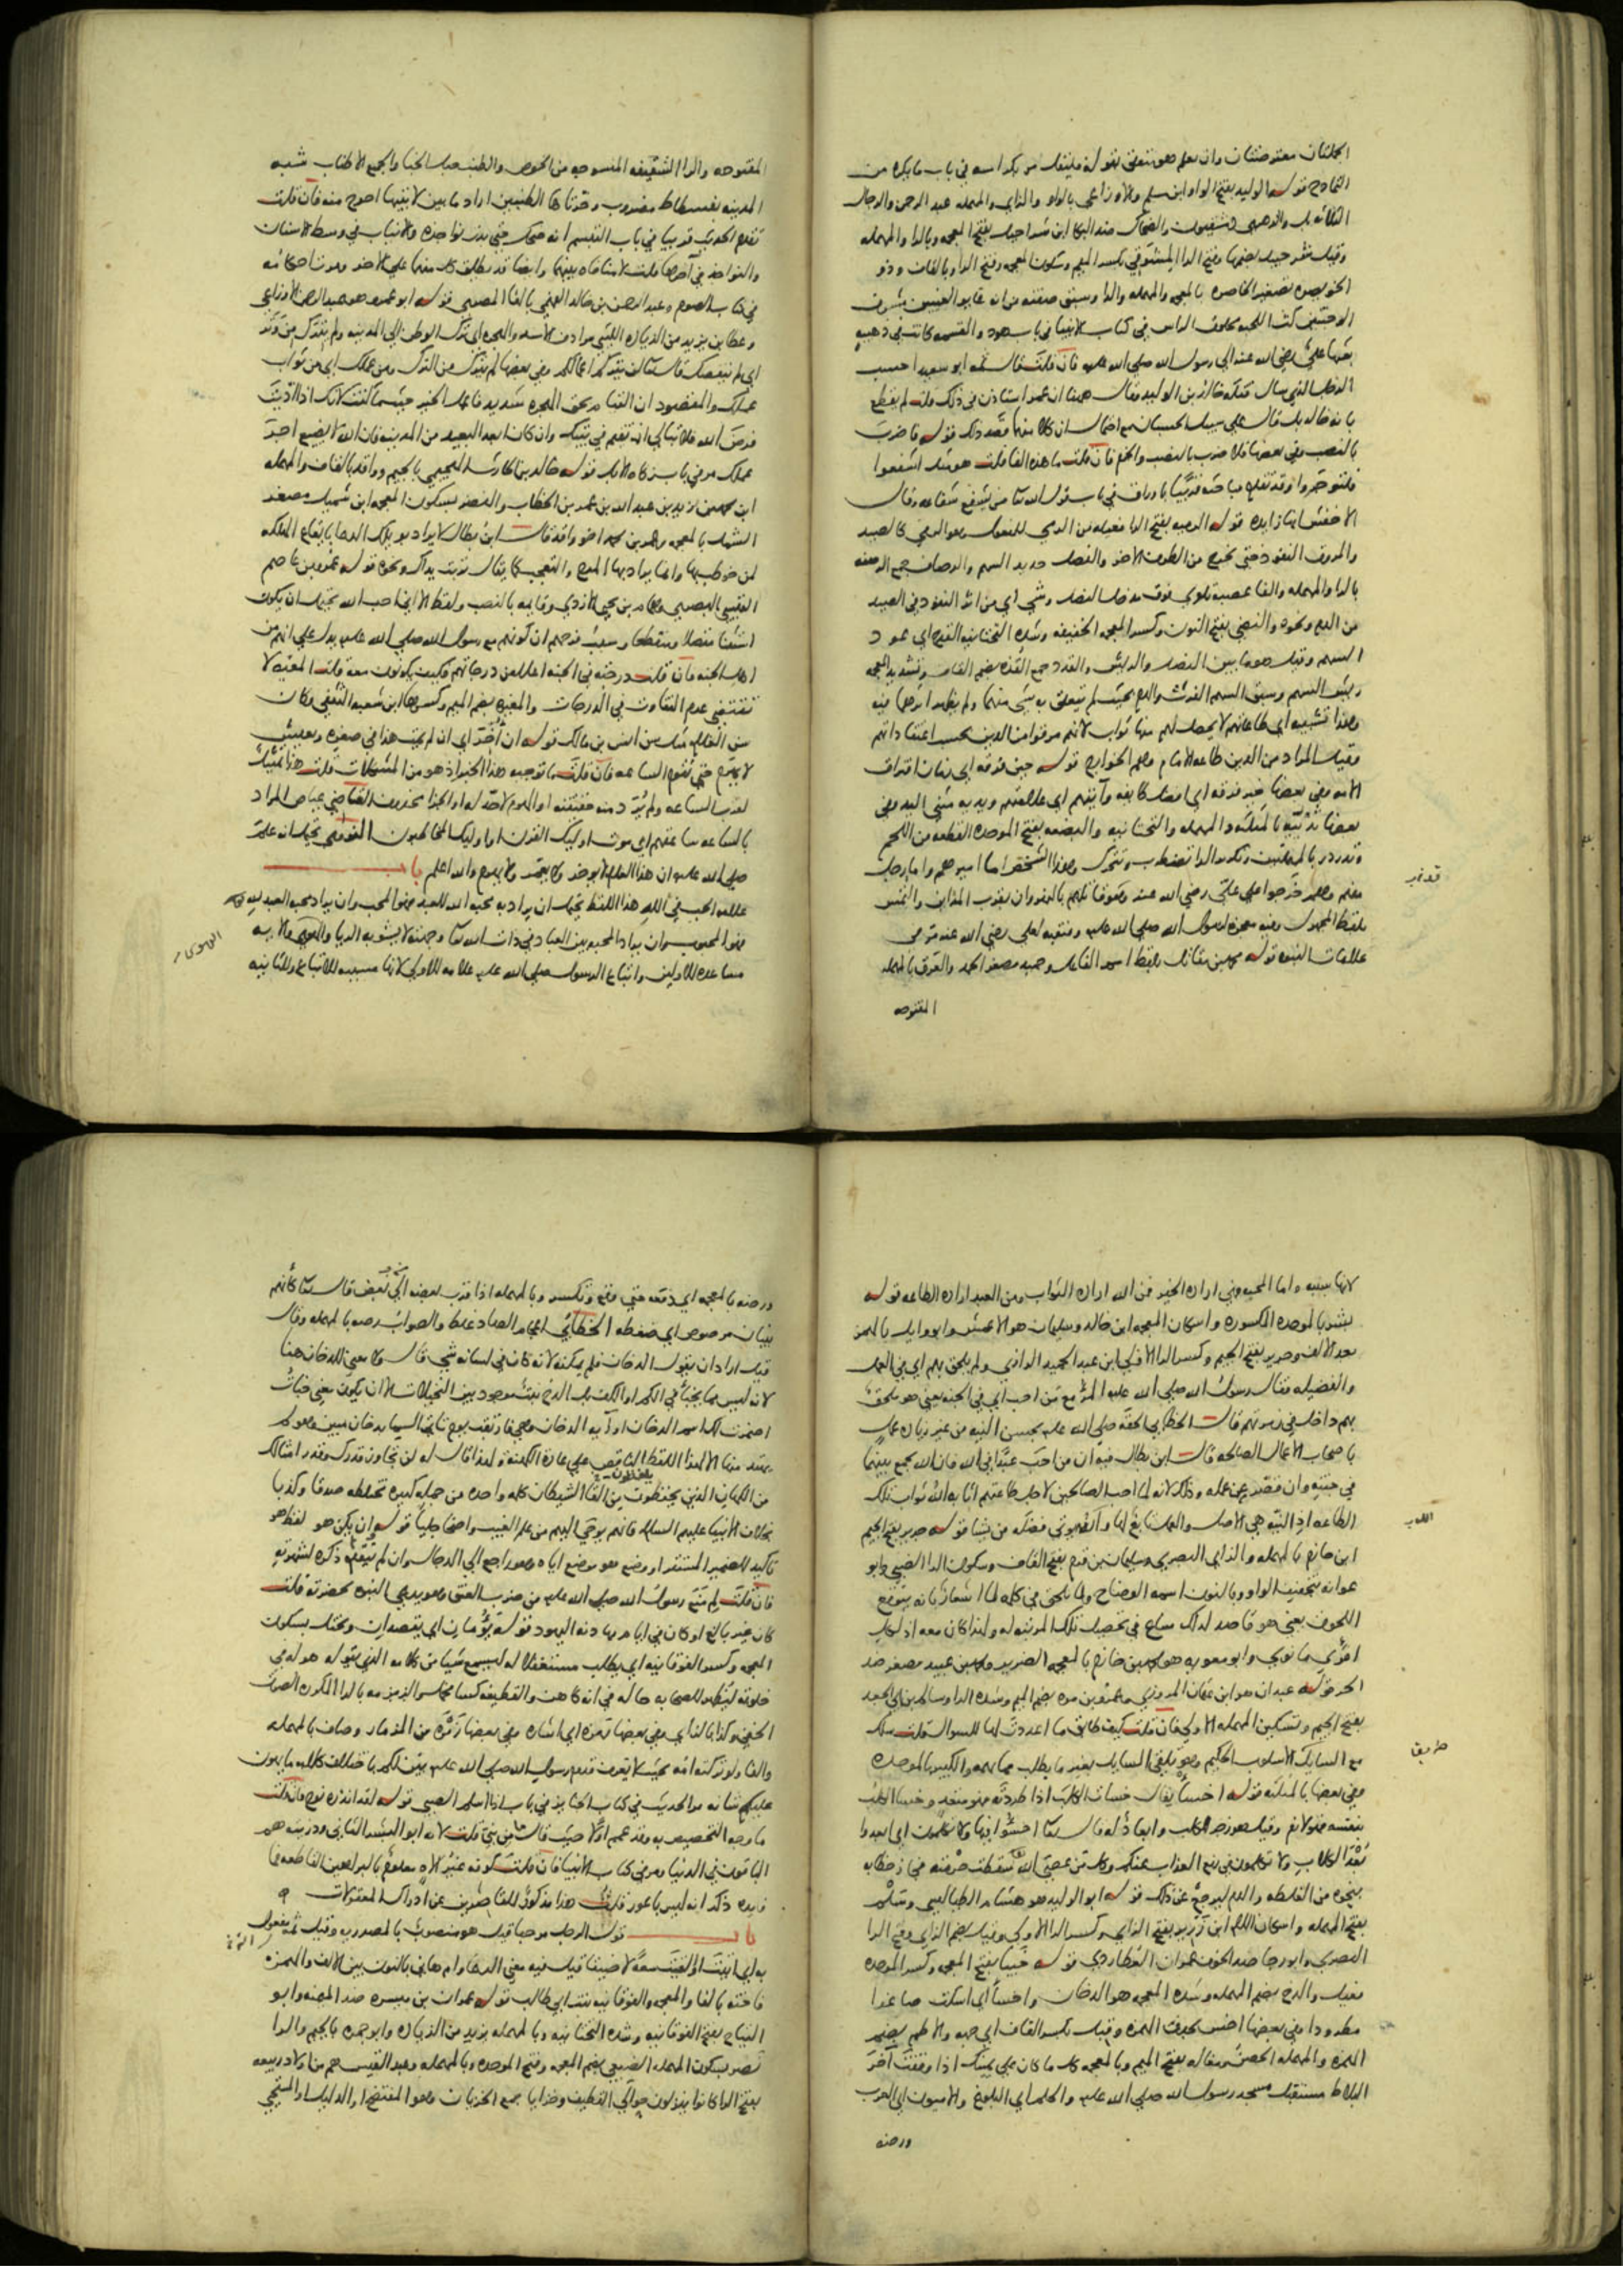 الجملتان معترضتان وان يعلم هو متعلق بقوله فليقل مر بحد اسه في باب ما يكره من
التمادح قوله الوليد بفتح الواو ابن مسلم والاوزاعي بالواو والزاي والمهمله عبد الرحمن والرجال
الثلاثه بل والزهري والضحاك ضد البكا ابن شراحيل بفتح المعجمه وبالرا والمهمله
وقيل شرحبيل بضمها وفتح الرا المشرقي بكسر الميم وسكون المعجمه وفتح الرا وبالقاف وذو
الخويصره تصغير الخاصره بالمعجمه والمهمله والرا وسبق صفته من انه غاير العينين مشرف
الوجنتين كث اللحيه محلوق الراس في كتاب الانبيا في باب هود والقسمه كانت في ذهبة
بعثها علي رضي الله عنه الي رسول الله صلي الله عليه فان قلت قال ثمه ابو سعيد احسب
الرجل الذي سال قتله خالد بن الوليد وقال ههنا ان عمر استاذن في ذلك قلت لم يقطع
بانه خالد بل قال علي سبيل الحسبان مع احتمال ان كلا منهما قصد ذلك قوله فاضرب
بالنصب وفي بعضها فلاضرب بالنصب والجزم فان قلت ما هذه الفا قلت هو مثل اشفعوا
فلتوجروا وقد تقدم مباحثه قريبا باوراق في باب قول الله تعا من يشفع شفاعه وقال
الاخفش انها زايده قوله الرميه بفتح الرا فعيله من الرمي للمفعول وهو المرمي كالصيد
والمروق النفوذ حتي يخرج من الطرف الاخر والنصل حديد السهم والرصاف جمع الرصفه
بالرا والمهمله والفا عصبة تلوي فوق مدخل النصل وشي اي من اثر النفوذ في الصيد
من الدم ونحوه والنضي بفتح النون وكسر المعجمه الخفيفه وشده التحتانيه القدح اي عود
السهم وقيل هو ما بين النصل والريش والقذذ جمع القذة بضم القاف وتشديد المعجمه
ريش السهم وسبق السهم الفرث والدم بحيث لم يتعلق به شي منهما ولم يظهر اثرهما فيه
وهذا تشبيه اي طاعاتهم لا يحصل لهم منها ثواب لانهم مرقوا من الدين بحسب اعتقاداتهم
وقيل المراد من الدين طاعه الامام وهم الخوارج قوله حين فرقه اي زمان افتراق
الامه وفي بعضها خير فرقه اي افضل طايفه وآيتهم اي علامتهم ويديه مثني اليد وفي
بعضها ثدييه بالمثلثه والمهمله والتحتانيه والبضعه بفتح الموحده القطعه من اللحم
وتدردر بالمهملتين وتكرير الرا تضطرب وتتحرك وهذا الشخص اما اميرهم واما رجل
منهم وهم خرجوا علي علي رضي الله عنه وهو قاتلهم بالنهروان بقرب المداين والتمس
بلفظ المجهول وفيه معجزة لرسول الله صلي الله عليه ومنقبه لعلي رضي الله عنه مر في
علامات النبوه قوله محمد بن مقاتل بلفظ اسم الفاعل وحميد مصغر الحمد والعرق بالمهمله
المفتوحه
المفتوحه والرا الشقيقه المنسوجه من الخوص والطنب حبل الخبا والجمع الاطناب شبه
المدينه بفسطاط مضروب وحرتاها الطنبين اراد ما بين لابتيها احوج منه فان قلت
تقدم الحديث قريبا في باب التبسم انه ضحك حتي بدت نواجذه والانياب في وسط الاسنان
والنواجذ في آخرها قلت لا منافاه بينهما وايضا قد يطلق كل منهما علي الاخر ومرت احكامه
في كتاب الصوم وعبد الرحمن بن خالد الفهمي بالفا المصري قوله ابو عمرو هو عبد الرحمن الاوزاعي
وعطا بن يزيد من الزياده الليثي مرادف الاسد والهجره اي ترك الوطن الي المدينه ولم يترك من وتر
اي لم ينقصك قال تعالي لن يتركم اعمالكم وفي بعضها لم يترك من الترك ومن عملك اي من ثواب
عملك والمقصود ان القيام بحق الهجره شديد فاعمل الخير حيثما كنت لانك اذا اديت
فرض الله فلا تبالي ان تقيم في بيتك وان كان ابعد البعيد من المدينه فان الله لا يضيع اجر
عملك مر في باب زكاه الابل قوله خالد بن الحارث الهجيمي بالجيم وواقد بالقاف والمهمله
ابن محمد بن زيد بن عبد الله بن عمر بن الخطاب والنضر بسكون المعجمه ابن شميل مصغر
الشمل بالمعجمه وعمر بن محمد اخو واقد قال ابن بطال لا يراد بويلك الدعا بايقاع الهلكه
لمن خوطب بها وانما يراد بها المدح والتعجب كما يقال تربت يداك ونحوه قوله عمرو بن عاصم
القيسي البصري وهمام بن يحيي الازدي وقايمه بالنصب ولفظ الا اني احب الله يحتمل ان يكون
استثنا متصلا ومنقطعا وسبب فرحهم ان كونهم مع رسول الله صلي الله عليه يدل علي انهم من
اهل الجنه فان قلت درجته في الجنه اعلا من درجاتهم فكيف يكونون معه قلت المعيه لا
تقتضي عدم التفاوت في الدرجات والمغيره بضم الميم وكسرها ابن شعبه الثقفي وكان
سن الغلام مثل سن انس بن مالك قوله ان اخر اي ان لم يمت هذا في صغره ويعيش
لا يهرم حتي تقوم الساعه فان قلت ما توجيه هذا الخبر اذ هو من المشكلات قلت هذا تمثيل
لقرب الساعه ولم يرد منه حقيقته او الهرم لا حد له او الجزا محذوف القاضي عياض المراد
بالساعه ساعتهم اي موت اوليك القرن او اوليك المخاطبون النووي يحتمل انه علم
صلي الله عليه ان هذا الغلام لا يوخر ولا يعمر ولا يهرم والله اعلم باب
علامه الحب في الله هذا اللفظ يحتمل ان يراد به محبه الله للعبد فهو المحب وان يراد محبه العبد لله
فهو المحبوب وان يراد المحبه بين العباد في ذات الله تعا وجهته لا يشوبه الريا والهوي والايه
مساعده للاولين واتباع الرسول صلي الله عليه علامه للاولي لانها مسببه للاتباع وللثانيه
لانها سببه واما المحبه فهي اراده الخير فمن الله اراده الثواب ومن العبد اراده الطاعه قوله
بشر بالموحده المكسوره واسكان المعجمه ابن خالد وسليمان هو الاعمش وابو وايل بالهمز
بعد الالف وجرير بفتح الجيم وكسر الرا الاولي ابن عبد الحميد الرازي ولم يلحق بهم اي في العمل
والفضيله فقال رسول الله صلي الله عليه المرء مع من احب اي في الجنه يعني هو ملحق
بهم داخل في زمرتهم قال الخطابي الحقه صلي الله عليه بحسن النيه من غير زياده عمل
باصحاب الاعمال الصالحه قال ابن بطال فيه ان من احب عبدا في الله فان الله يجمع بينهما
في جنته وان قصر عن عمله وذلك لانه لما احب الصالحين لاجل طاعتهم اثابه الله ثواب تلك
الطاعه اذ النيه هي الاصل والعمل تابع لها والله يوتي فضله من يشا قوله جرير بفتح الجيم
ابن حازم بالمهمله والزاي البصري وسليمان بن قرم بفتح القاف وسكون الرا الضبي وابو
عوانه بتخفيف الواو وبالنون اسمه الوضاح ولما يلحق في كلمه لما اشعار بانه يتوقع
اللحوق يعني هو قاصد لذلك ساع في تحصيل تلك المرتبه له ولهذا كان معه اذ لكل
امرئ ما نوي وابو معويه هو محمد بن خازم بالمعجمه الضرير ومحمد بن عبيد مصغر ضد
الحر قوله عبدان هو ابن عثمان المروزي وعمرو بن مره بضم الميم وشده الرا وسالم بن ابي الجعد
بفتح الجيم وتسكين المهمله الاولي فان قلت كيف طابق ما اعددت لها للسوال قلت سلك
مع السايل الاسلوب الحكيم وهو تلقي السايل بغير ما يطلب مما يهمه والكبير بالموحده
وفي بعضها بالمثلثه قوله اخسا يقال خسات الكلب اذا طردته فهو متعد وخسا الكلب
بنفسه فهو لازم وقيل هو زجر للكلب وابعاد له قال تعا اخسئوا فيها ولا تكلمون اي ابعدوا
بعد الكلاب ولا تكلمون في رفع العذاب عنكم وكل من عصي الله سقطت حرمته فجاز خطابه
بنحوه من الغلظه والذم ليرجع عن ذلك قوله ابو الوليد هو هشام الطيالسي وسلم
بفتح المهمله واسكان اللام ابن زرير بفتح الزاي وكسر الرا الاولي وقيل بضم الزاي وفتح الرا
البصري وابو رجا ضد الخوف عمران العطاردي قوله خبيا بفتح المعجمه وكسر الموحده
فعيل والدخ بضم المهمله وشده المعجمه هو الدخان واخسا اي اسكت صاغرا
مطرودا وفي بعضها اخس بحذف الهمزه وقبل بكسر القاف اي جهه والاطم بضم
الهمزه والمهمله الحصن ومغاله بفتح الميم وبالمعجمه كل ما كان علي يمينك اذا وقفت آخر
البلاط مستقبل مسجد رسول الله صلي الله عليه والحلم اي البلوغ والاميون اي العرب
ورضه
ورضه بالمعجمه اي دفعه حتي وقع وتكسر وبالمهمله اذا قرب بعضه الي بعض قال تعا كأنهم
بنيان مرصوص اي ضغطه الخطابي اعجام الصاد غلط والصواب رصه بالمهمله وقال
قيل اراد ان يقول الدخان فلم يمكنه لانه كان في لسانه شي قال ولا معني للدخان هنا
لانه ليس مما يخبأ في الكم او الكف بل الدخ نبت موجود بين النخيلات الا ان يكون معني خبات
اضمرت لك اسم الدخان او آيه الدخان وهي فارتقب يوم تاتي السما بدخان مبين وهو لم
يهتد منها الا لهذا اللفظ الناقص علي عادة الكهنه ولهذا قال له لن تجاوز قدرك وقدر امثالك
من الكهان الذين يحفظون من القا الشيطان كلمه واحده من جمله كثيره تختلطه صدقا وكذبا
بخلاف الانبيا عليهم السلام فانهم يوحي اليهم من علم الغيب واضحا جليا قوله ان يكن هو لفظ هو
تاكيد للضمير المستتر او وضع هو موضع اياه وهو راجع الي الدجال وان لم يتقدم ذكره لشهرته
فان قلت لم منع رسول الله صلي الله عليه من ضرب العنق وهو يدعي النبوه بحضرته قلت
كان غير بالغ او كان في ايام مهادنه اليهود قوله يؤمان اي يقصدان ويختل بسكون
المعجمه وكسر الفوقانيه اي يطلب مستغفلا له ليسمع شيا من كلامه الذي يقوله هو له في
خلوته ليظهر للصحابه حاله في انه كاهن والقطيفه كسا مخمل والزمزمه بالرا المكرره الصوت
الخفي وكذا بالزاي وفي بعضها رمزه اي اشاره وفي بعضها زمره من المزمار وصاف بالمهمله
والفا ولو تركته امه بحيث لا يعرف قدوم رسول الله صلي الله عليه بين لكم باختلاف كلامه ما يهون
عليكم شانه مر الحديث في كتاب الجنايز في باب اذا اسلم الصبي قوله لقد انذره نوح فان قلت
ما وجه التخصيص به وقد عمم اولا حيث قال ما من نبي قلت لانه ابو البشر الثاني وذريته هم
الباقون في الدنيا ومر في كتاب الانبيا فان قلت كونه غير الاه معلوم بالبراهين القاطعه فما
فايده ذكر انه ليس باعور قلت هذا مذكور للقاصرين عن ادراك المعقولات
باب قول الرجل مرحبا قيل هو منصوب بالمصدريه وقيل مفعول
به اي اتيت او لقيت سعة لا ضيقا قيل فيه معني الدعا وام هاني بالنون بين الالف والهمزه
فاخته بالفا والمعجمه والفوقانيه بنت ابي طالب قوله عمران بن ميسره ضد الميمنه وابو
التياح بفتح الفوقانيه وشده التحتانيه وبالمهمله يزيد من الزياده وابو جمره بالجيم والرا
نصر بسكون المهمله الضبعي بضم المعجمه وفتح الموحده وبالمهمله وعبد القيس هم من اولاد ربيعه
بفتح الرا كانوا ينزلون حوالي القطيف وخزايا جمع الخزيان وهو المفتضح او الذليل او المستحي